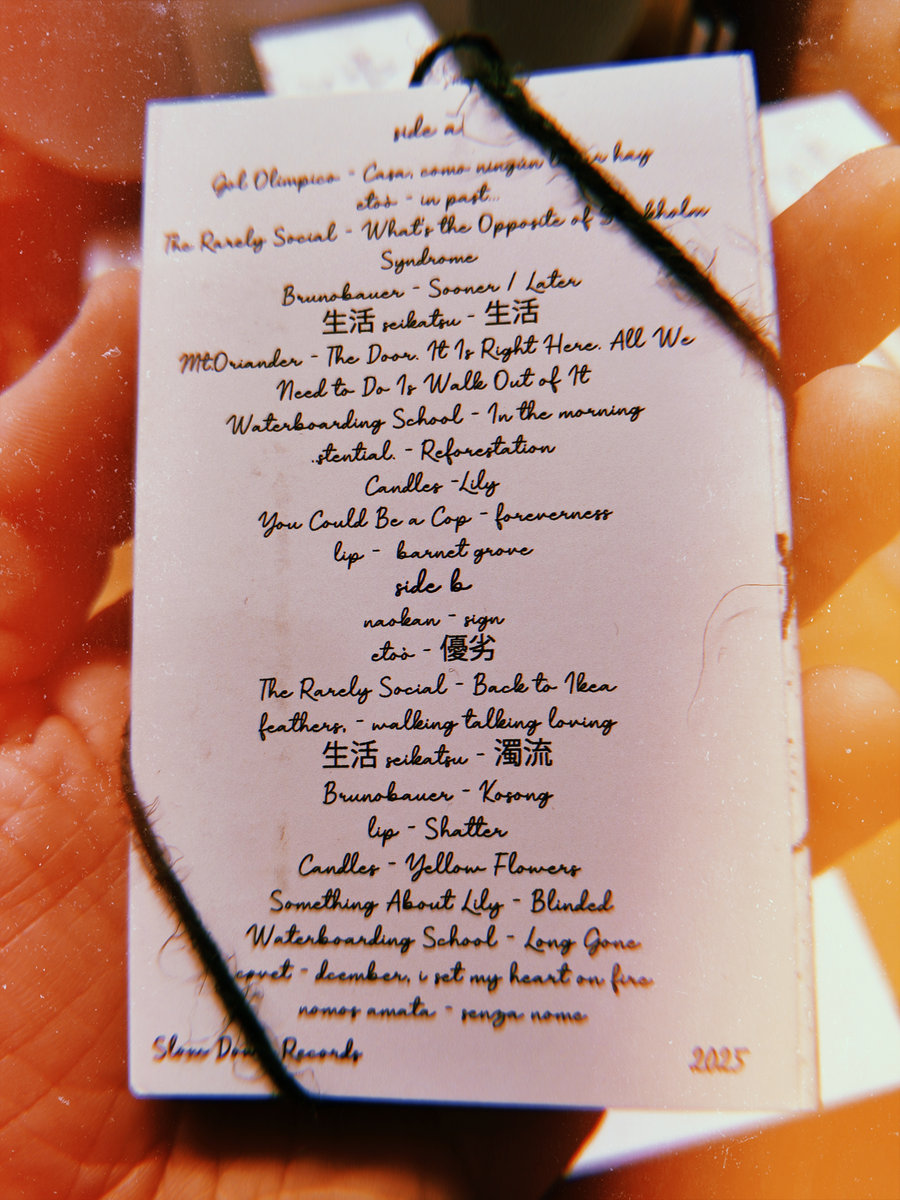 side a
Gol Olimpico - Casa, como ningún hay
etoò - in past...
The Rarely Social - What's the Opposite of
Syndrome
Brunobauer - Sooner / Later
生活 seikatsu - 生活
Mt.Oriander - The Door. It Is Right Here. All We
Need to Do Is Walk Out of It
Waterboarding School - In the morning
.stential. - Reforestation
Candles -Lily
You Could Be a Cop - foreverness
lip - barnet grove
side b
naokan - sign
etoò - 優劣
The Rarely Social - Back to Ikea
feathers, - walking talking loving
生活 seikatsu - 濁流
Brunobauer - Kosong
lip - Shatter
Candles - Yellow Flowers
Something About Lily - Blinded
Waterboarding School - Long Gone
covet - dcember, i set my heart on fire
nomos amata - senza nome
Slow Down Records
2025